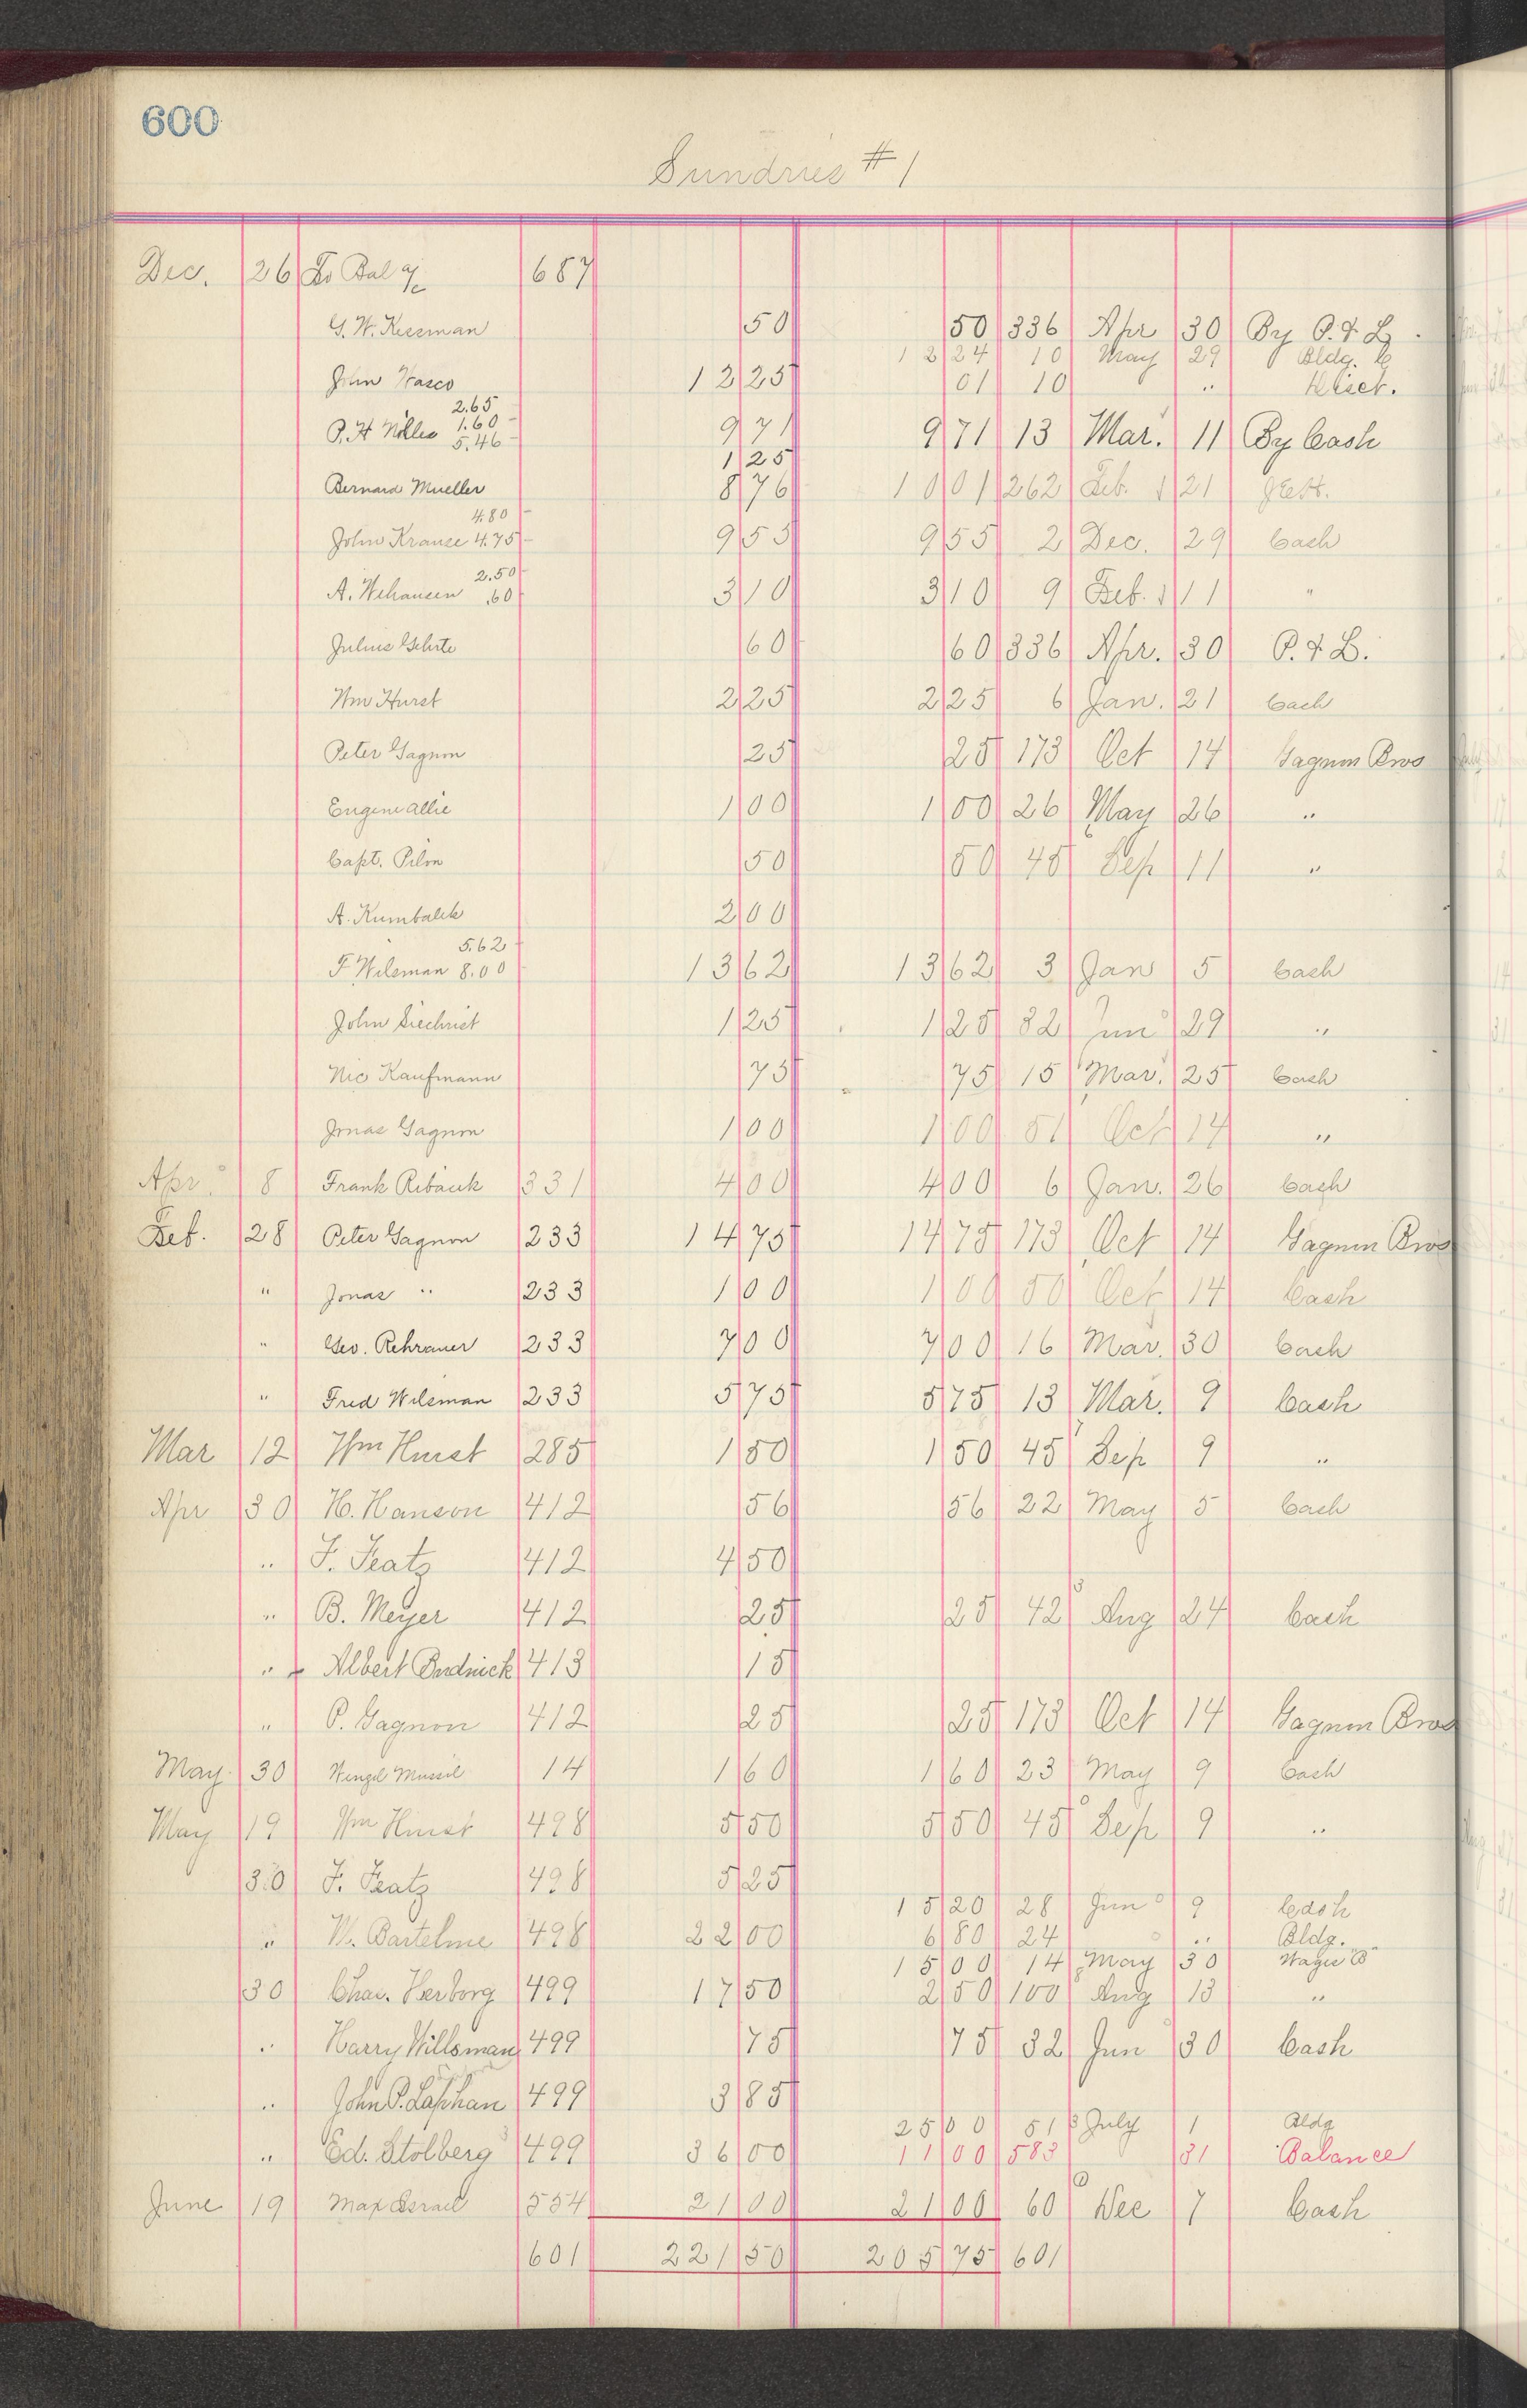 600
Sundries # 1
Dec. 26 To Bal a/c 687
G. W. Kessman 50 50 336 Apr 30 By P. & L.
12 24 10 May 29 Bldg.
John Wasco 12 25 01 10 "
2.65
P. H Nilles 1.60 9 71 9 71 13 Mar. 11 By Cash
5.46
1 25
Bernard Mueller 8 76 10 01 262 Feb. 21
4.80
John Krause 4.75 9 55 9 55 2 Dec. 29 Cash
2.50
A. Wehausen .60 3 10 3 10 9 Feb. 11 "
Julius Gehrte 60 60 336 Apr. 30 P. & L.
Wm Hurst 2 25 2 25 6 Jan. 21 Cash
Peter Gagnon 25 25 173 Oct 14 Gagnon Bros
Eugene Allie 1 00 1 00 26 May 26 "
Capt. Pilon 50 50 45 Sep 11 "
A. Kumbalek 2 00
5.62
F Wilsman 8.00 13 62 13 62 3 Jan 5 Cash
John Siechrist 1 25 1 25 32 Jun 29 "
Nic Kaufmann 75 75 15 Mar. 25 Cash
Jonas Gagnon 1 00 1 00 51 Oct 14 "
Apr. 8 Frank Ribauk 331 4 00 4 00 6 Jan. 26 Cash
Feb. 28 Peter Gagnon 233 14 75 14 75 173 Oct 14 Gagnon Bros
" Jonas " 233 1 00 1 00 50 Oct 14 Cash
" Geo. Rehrauer 233 7 00 7 00 16 Mar. 30 Cash
" Fred Wilsman 233 5 75 5 75 13 Mar. 9 Cash
Mar 12 Wm Hurst 285 1 50 1 50 45 Sep 9 "
Apr 30 H. Hanson 412 56 56 22 May 5 Cash
" F. Featz 412 4 50
" B. Meyer 412 25 25 42 Aug 24 Cash
" Albert Budnick 413 15
" P. Gagnon 412 25 25 173 Oct 14 Gagnon Bros
May 30 Wenzel Mussil 14 1 60 1 60 23 May 9 Cash
May 19 Wm Hurst 498 5 50 5 50 45 Sep 9 "
30 F. Featz 498 5 25
15 20 28 Jun 9 Cash
" W. Bartelme 498 22 00 6 80 24 " Bldg.
15 00 14 May 30 Wages B
30 Chas. Herborg 499 17 50 2 50 100 Aug 13 "
" Harry Willsman 499 75 75 32 Jun 30 Cash
" John P. Laphan 499 3 85
25 00 51 July 1 Bldg
" Ed. Stolberg 499 36 00 11 00 583 31 Balance
June 19 Max Israel 554 21 00 21 00 60 Dec 7 Cash
601 221 50 205 75 601